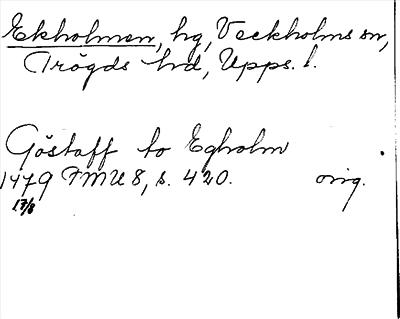 Ekholmen, hg, Veckholms sn,
Trögds hd, Upps. l.
Göstaff to Egholm
1479 FMU 8, s. 420. orig.
17/8